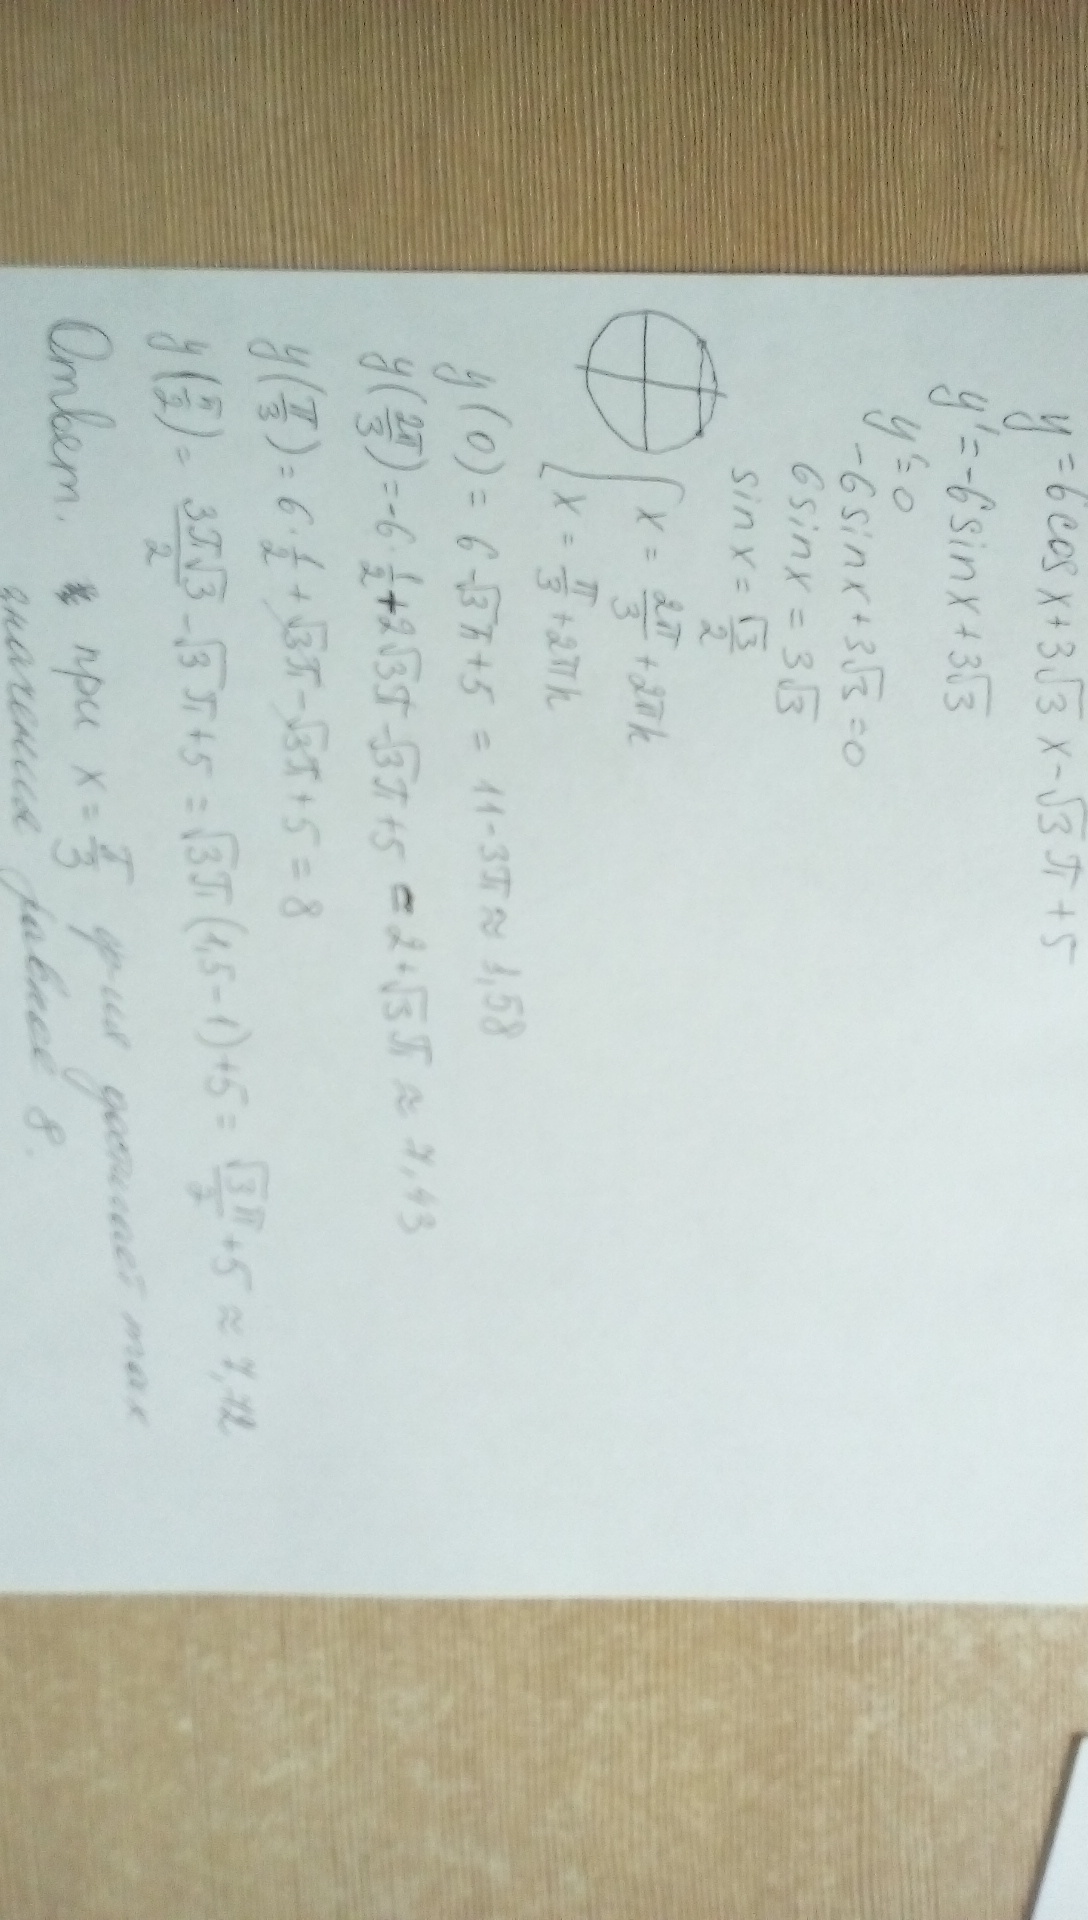 y = 6cos x + 3√3 x - √3 π + 5
y' = -6sin x + 3√3
y' = 0
-6sin x + 3√3 = 0
6sin x = 3√3
sin x = √3/2
[ x = 2π/3 + 2πk
x = π/3 + 2πk
y(0) = 6 - √3π + 5 = 11 - 3π ≈ 1,58
y(2π/3) = -6 · 1/2 + 2√3π - √3π + 5 = 2 + √3 π ≈ 7,43
y(π/3) = 6 · 1/2 + √3π - √3π + 5 = 8
y(π/2) = 3π√3/2 - √3 π + 5 = √3π(1,5 - 1) + 5 = √3π/2 + 5 ≈ 7,72
Ответ. при x = π/3 ф-ия достигает max
значения равное 8.